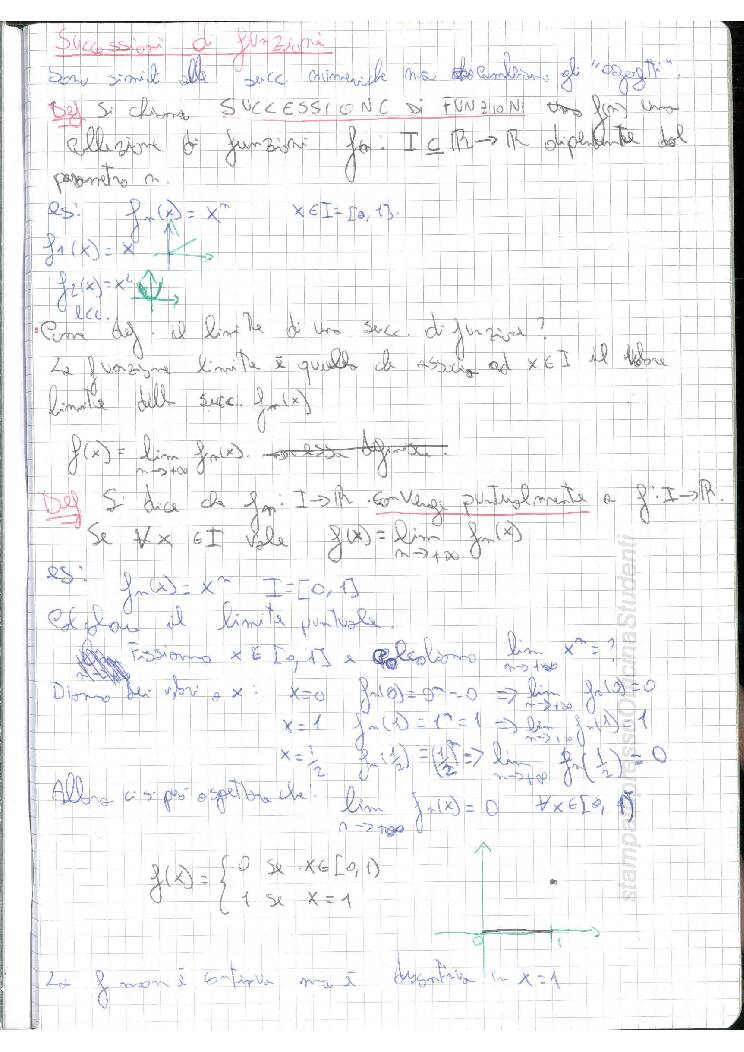 Successioni di funzioni
Sono simili alle succ. numeriche ma cambiano gli "oggetti".
Def Si chiama SUCCESSIONE DI FUNZIONI f(n) una
collezione di funzioni fn: I ⊆ ℝ → ℝ dipendente dal
parametro n.
es: fn(x) = x^n x ∈ I = [0, 1].
f1(x) = x
f2(x) = x²
ecc.
Come def. il limite di una succ. di funzione?
La funzione limite è quella che associa ad x ∈ I il valore
limite della succ. fn(x)
f(x) = lim n→+∞ fn(x).
Def Si dice che fn: I → ℝ converge puntualmente a f: I → ℝ.
Se ∀x ∈ I vale f(x) = lim n→+∞ fn(x)
es: fn(x) = x^n I = [0, 1]
Calcolare il limite puntuale.
Fissiamo x ∈ [0, 1] e calcoliamo lim n→+∞ x^n = ?
Diamo dei valori a x: x=0 fn(0) = 0^n = 0 ⇒ lim n→+∞ fn(0) = 0
x=1 fn(1) = 1^n = 1 ⇒ lim n→+∞ fn(1) = 1
x=1/2 fn(1/2) = (1/2)^n ⇒ lim n→+∞ fn(1/2) = 0
Allora ci si può aspettare che: lim n→+∞ fn(x) = 0 ∀x ∈ [0, 1)
f(x) = { 0 se x ∈ [0, 1)
1 se x = 1
0 1
La f non è continua ma è discontinua in x=1
stampato presso OfficinaStudenti